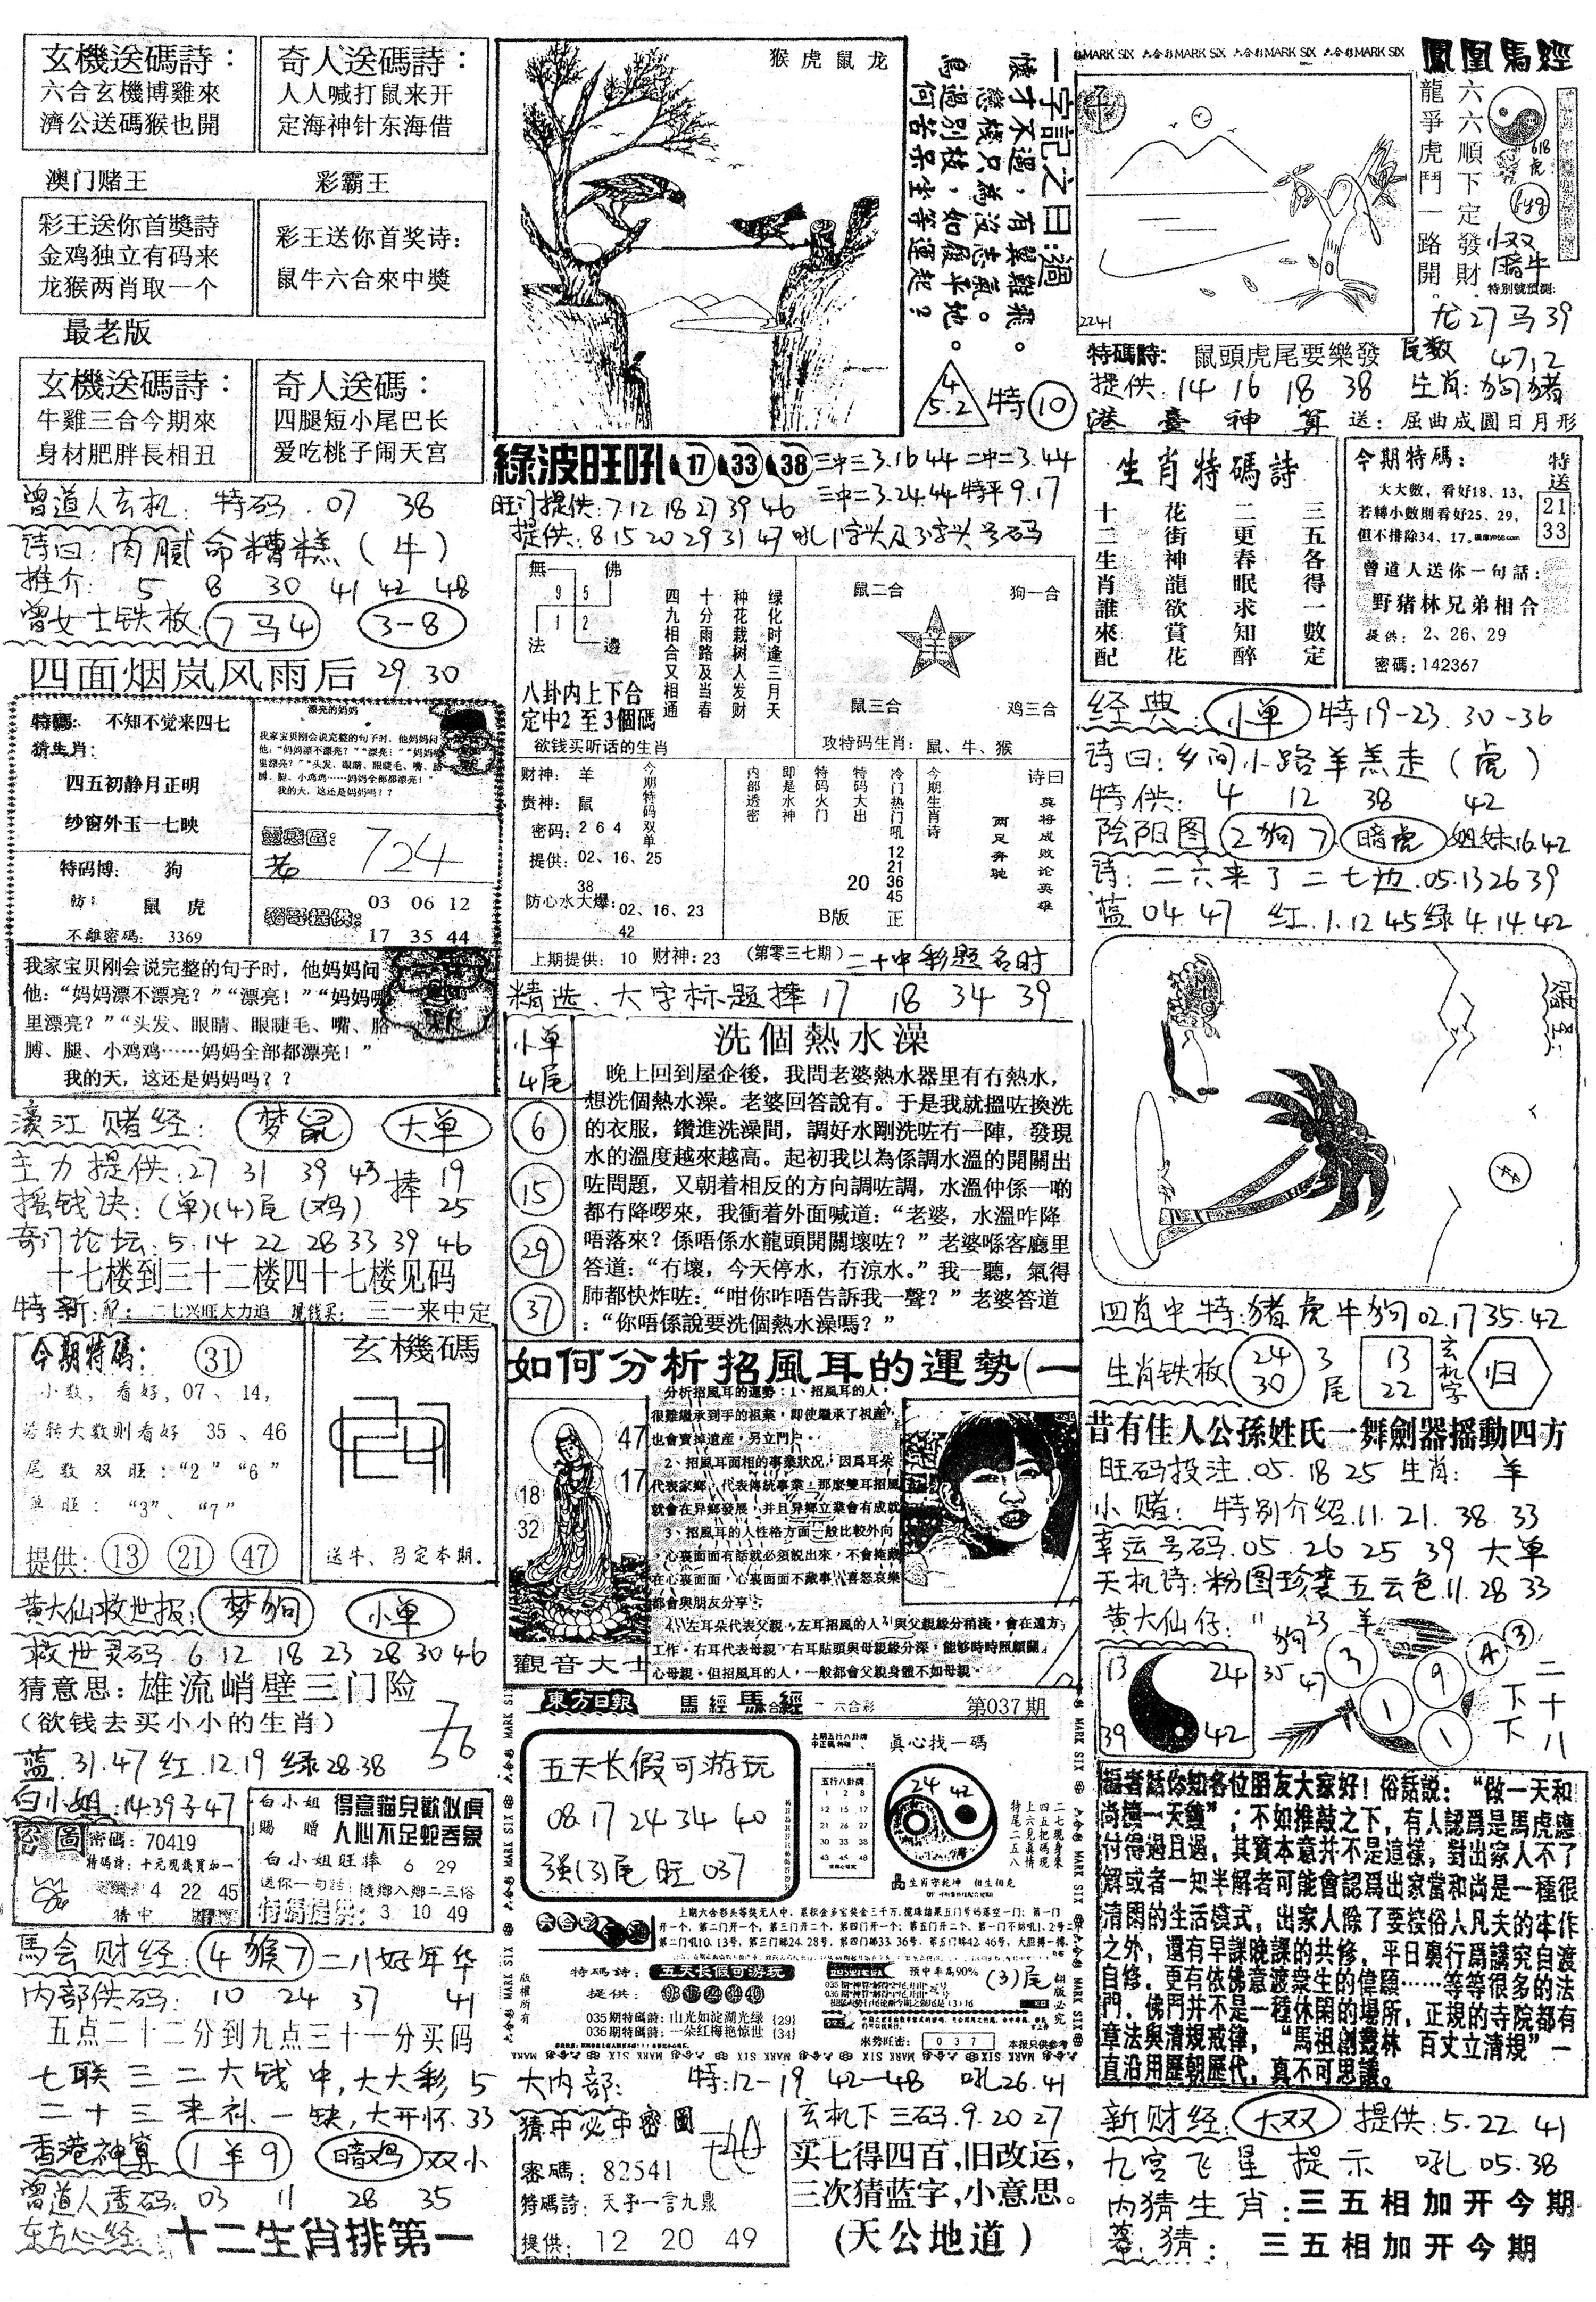 玄機送碼詩：
六合玄機博雞來
濟公送碼猴也開
奇人送碼詩：
人人喊打鼠来开
定海神针东海借
澳门赌王
彩王送你首獎詩
金鸡独立有码来
龙猴两肖取一个
彩霸王
彩王送你首奖诗：
鼠牛六合來中獎
最老版
玄機送碼詩：
牛雞三合今期來
身材肥胖長相丑
奇人送碼：
四腿短小尾巴长
爱吃桃子闹天宫
曾道人玄机：特码．07 38
诗曰：肉腻命糟糕（牛）
推介：5 8 30 41 42 48
曾女士铁板 7马4 3-8
四面烟岚风雨后 29 30
特碼： 不知不觉来四七
猜生肖：
四五初静月正明
纱窗外玉一七映
特码博： 狗
鼠 虎
不離密碼： 3369
漂亮的妈妈
724
03 06 12
17 35 44
我家宝贝刚会说完整的句子时，他妈妈问
他：“妈妈漂不漂亮？”“漂亮！”“妈妈哪
里漂亮？”“头发、眼睛、眼睫毛、嘴、胳
膊、腿、小鸡鸡……妈妈全部都漂亮！”
我的天，这还是妈妈吗？？
濠江赌经： 梦鼠 大单
主力提供：27 31 39 43 捧 19
摇钱诀：（单）（4）尾（鸡） 25
奇门论坛：5．14 22 28 33 39 46
十七楼到三十二楼四十七楼见码
特新： 二七兴旺大力追 三一来中定
今期特碼： 31
小数，看好，07、14，
若转大数则看好 35、46
尾数双旺：“2”“6”
单旺：“3”、“7”
提供： 13 21 47
玄機碼
送牛、马定本期．
黄大仙救世报： 梦狗 小单
救世灵码．6 12 18 23 28 30 46
猜意思：雄流峭壁三门险
（欲钱去买小小的生肖）
蓝．31．47 红．12．19 绿28．38
白小姐：
密圖
密碼：70419
特碼詩：十元现錢買加一
4 22 45
猜中
白小姐賜贈
得意貓兒歡似虎
人心不足蛇吞象
白小姐旺捧 6 29
送你一句話：隨鄉入鄉二三俗
特碼提供：3 10 49
馬会财经： 4猴7 二八好年华
内部供码：10 24 37 41
五点二十二分到九点三十一分买码
七联三二大钱中，大大彩 5
二十三来补一缺，大开怀．33
香港神算 1羊9 暗鸡 双小
曾道人透码：03 11 28 35
东方心经： 十二生肖排第一
猴虎鼠龙
一字記之曰：過
懷才不遇，有翼難飛。
戀棧只為沒志氣。
鳥過別枝，如履平地。
何苦呆坐等運起？
4
5.2 特 10
綠波旺吼 17 33 38
三中三3．16 44 二中二3．44
三中二3．24．44 特平9．17
旺门提供：7．12 18 27 39 46
提供：8 15 20 29 31 47 吼1字头及3字头号码
無 佛
9 5
1 2
法 邊
八卦内上下合
定中2 至3個碼
绿化时逢三月天
种花栽树人发财
十分雨路及当春
四九相合又相通
鼠二合 狗一合
羊
鼠三合 鸡三合
欲钱买听话的生肖
攻特码生肖：鼠、牛、猴
财神：羊
贵神：鼠
密码：264
提供：02、16、25
38
防心水大爆：02、16、23
42
今期特码双单
内部透密
即是水神
特码火门
特码大出
20
冷门热门吼
12
21
36
45
B版 正
今期生肖诗
诗曰
莫将成败论英雄
两足奔驰
上期提供：10 财神：23 （第零三七期）二十中彩题名时
精选．大字标题捧 17 18 34 39
小单
4尾
6
15
29
37
洗個熱水澡
晚上回到屋企後，我問老婆熱水器里有冇熱水，
想洗個熱水澡。老婆回答說有。于是我就搵咗換洗
的衣服，鑽進洗澡間，調好水剛洗咗冇一陣，發現
水的溫度越來越高。起初我以為係調水溫的開關出
咗問題，又朝着相反的方向調咗調，水溫仲係一啲
都冇降啰來，我衝着外面喊道：“老婆，水溫咋降
唔落來？係唔係水龍頭開關壞咗？”老婆喺客廳里
答道：“冇壞，今天停水，冇涼水。”我一聽，氣得
肺都快炸咗：“咁你咋唔告訴我一聲？”老婆答道
：“你唔係說要洗個熱水澡嗎？”
如何分析招風耳的運勢（一
47
17
18
32
觀音大士
分析招風耳的運勢：1、招風耳的人，
很難繼承到手的祖業，即使繼承了祖產，
也會賣掉遺産，另立門戶。
2、招風耳面相的事業狀況，因爲耳朵
代表家鄉，代表傳統事業，那麼雙耳招風
就會在异鄉發展，并且异鄉立業會有成就
3、招風耳的人性格方面一般比較外向
，心裏面面有話就必須說出來，不會掩藏
在心裏面面，心裏面面不藏事，喜怒哀樂
都會與朋友分享；
4、左耳朵代表父親，左耳招風的人，與父親緣分稍淺，會在遠方
工作。右耳代表母親，右耳貼頭與母親緣分深，能够時時照顧關
心母親。但招風耳的人，一般都會父親身體不如母親。
東方日報 馬經 六合彩 第037期
五天长假可游玩
08．17 24 34 40
强（3）尾 旺 037
真心找一碼
五行八卦牌
24 42
二七現身來
四五把碼現
上六見真情
特尾二五八
生肖守乾坤 相生相克
特碼詩： 五天长假可游玩
提供：08 17 24 34 40
035期特碼詩：山光如淀湖光绿｛29｝
036期特碼詩：一朵红梅艳惊世｛34｝
預中率高90% （3）尾
來勢旺密：037
本報只供參考
版權所有
翻版必究
大内部： 特：12-19 42-48 吼26．41
猜中必中密圖
密碼：82541
特碼詩：天子一言九鼎
提供：12 20 49
玄机下三码．9．20 27
买七得四百，旧改运，
三次猜蓝字，小意思。
（天公地道）
鳳凰馬經
2241
六六順下定發財
龍爭虎鬥一路開
618
虎
小双
暗牛
特別號預測：
龙27马39
特碼詩： 鼠頭虎尾要樂發 尾数 47，2
提供：14 16 18 38 生肖：狗猪
港臺神算 送：屈曲成圓日月形
生肖特碼詩
三五各得一數定
二更春眠求知醉
花街神龍欲賞花
十二生肖誰來配
今期特碼：
大大數，看好18、13，
若轉小數則看好25、29，
但不排除34、17。
特送
21
33
曾道人送你一句話：
野猪林兄弟相合
提供：2、26、29
密碼：142367
经典： 小单 特19-23．30-36
诗曰：乡间小路羊羔走（虎）
特供：4 12 38 42
阴阳图 2狗7 暗虎 姐妹16．42
诗：二六来了二七边．05．13 26 39
蓝 04 47 红．1．12 45 绿4．14．42
四肖中特：猪虎牛狗02．17 35．42
生肖铁板 24 30 3尾 13 22 玄机字 归
昔有佳人公孫姓氏一舞劍器摇動四方
旺码投注．05．18 25 生肖：羊
小赌：特别介绍．11．21．38．33
幸运号码．05．26 25 39 大单
天机诗：粉图珍裘五云色11．28 33
黄大仙仔： 11 23 羊
狗
35 47
13 24
39 42
3 9 A 3
1 1
二十八
下下
編者話你知各位朋友大家好！俗話説：“做一天和
尚撞一天鐘”；不如推敲之下，有人認爲是馬虎應
付得過且過，其實本意并不是這樣，對出家人不了
解或者一知半解者可能會認爲出家當和尚是一種很
清閑的生活模式，出家人除了要接俗人凡夫的工作
之外，還有早課晚課的共修，平日裏行爲講究自渡
自修，更有依佛意渡衆生的偉願……等等很多的法
門，佛門并不是一種休閑的場所，正規的寺院都有
章法與清規戒律，“馬祖創叢林 百丈立清規”一
直沿用歷朝歷代，真不可思議。
新财经： 大双 提供：5．22 41
九宫飞星提示 吼05．38
内猜生肖：三五相加开今期
猜：三五相加开今期